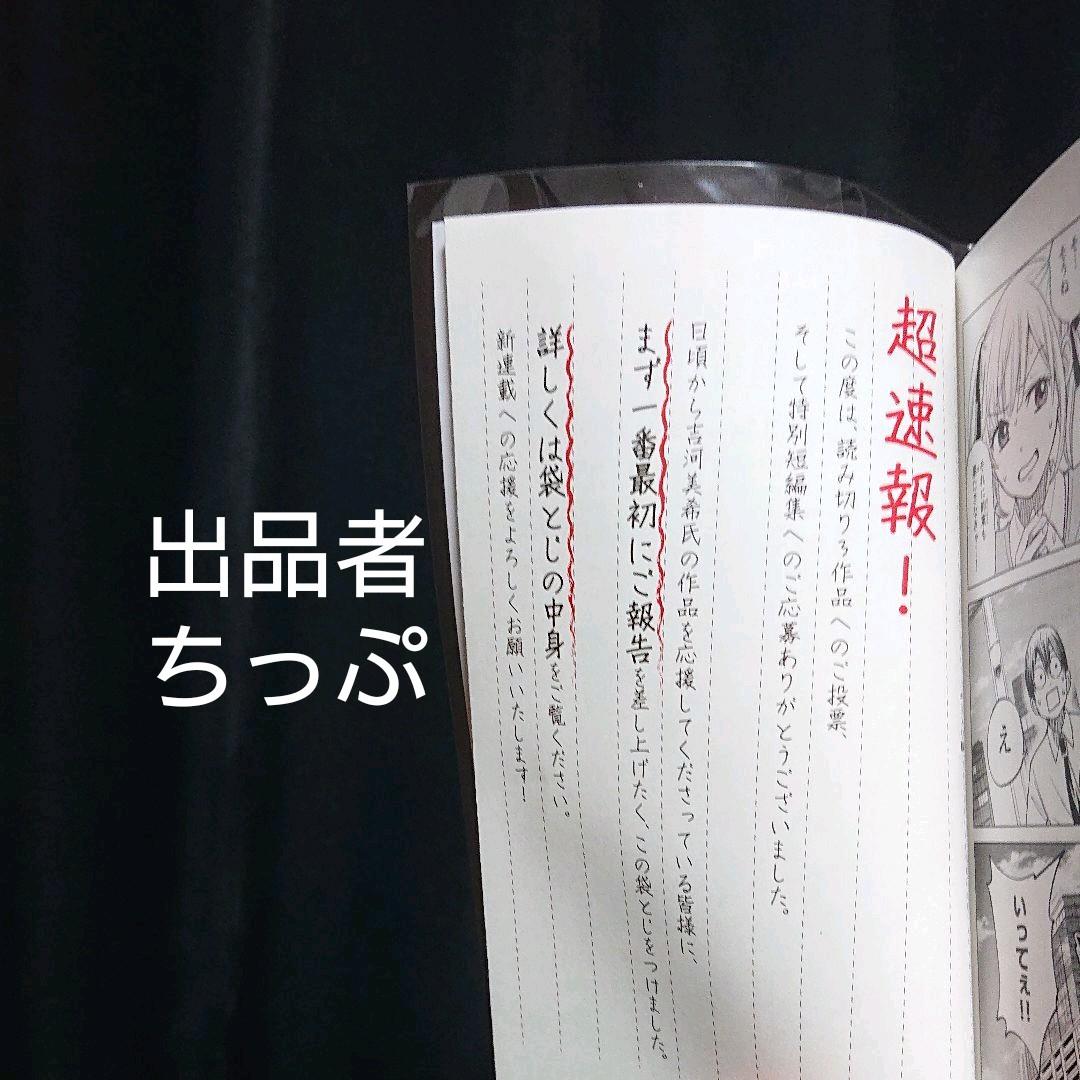 超速報！
この度は、読み切り3作品へのご投票、
そして特別短編集へのご応募ありがとうございました。
日頃から吉河美希氏の作品を応援してくださっている皆様に、
まず一番最初にご報告を差し上げたく、この袋とじをつけました。
詳しくは袋とじの中身をご覧ください。
新連載への応援をよろしくお願いいたします！
え
いってえ!!
出品者
ちっぷ